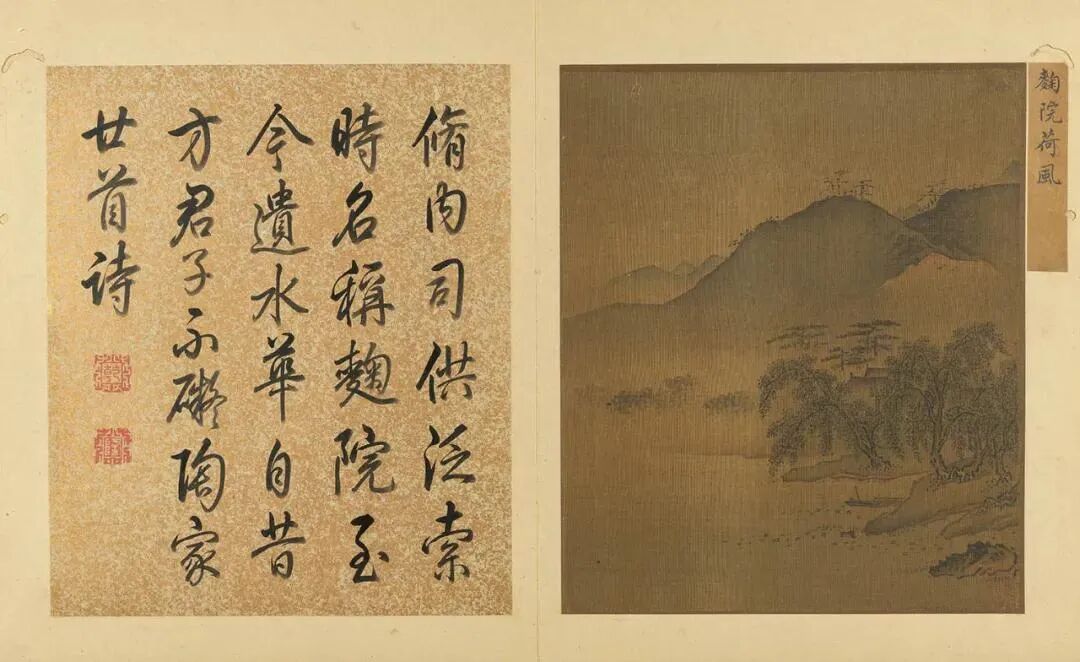 麴院荷風
脩内司供泛索
時名稱麴院至
今遺水華自昔
方君子不礙陶家
廿首詩